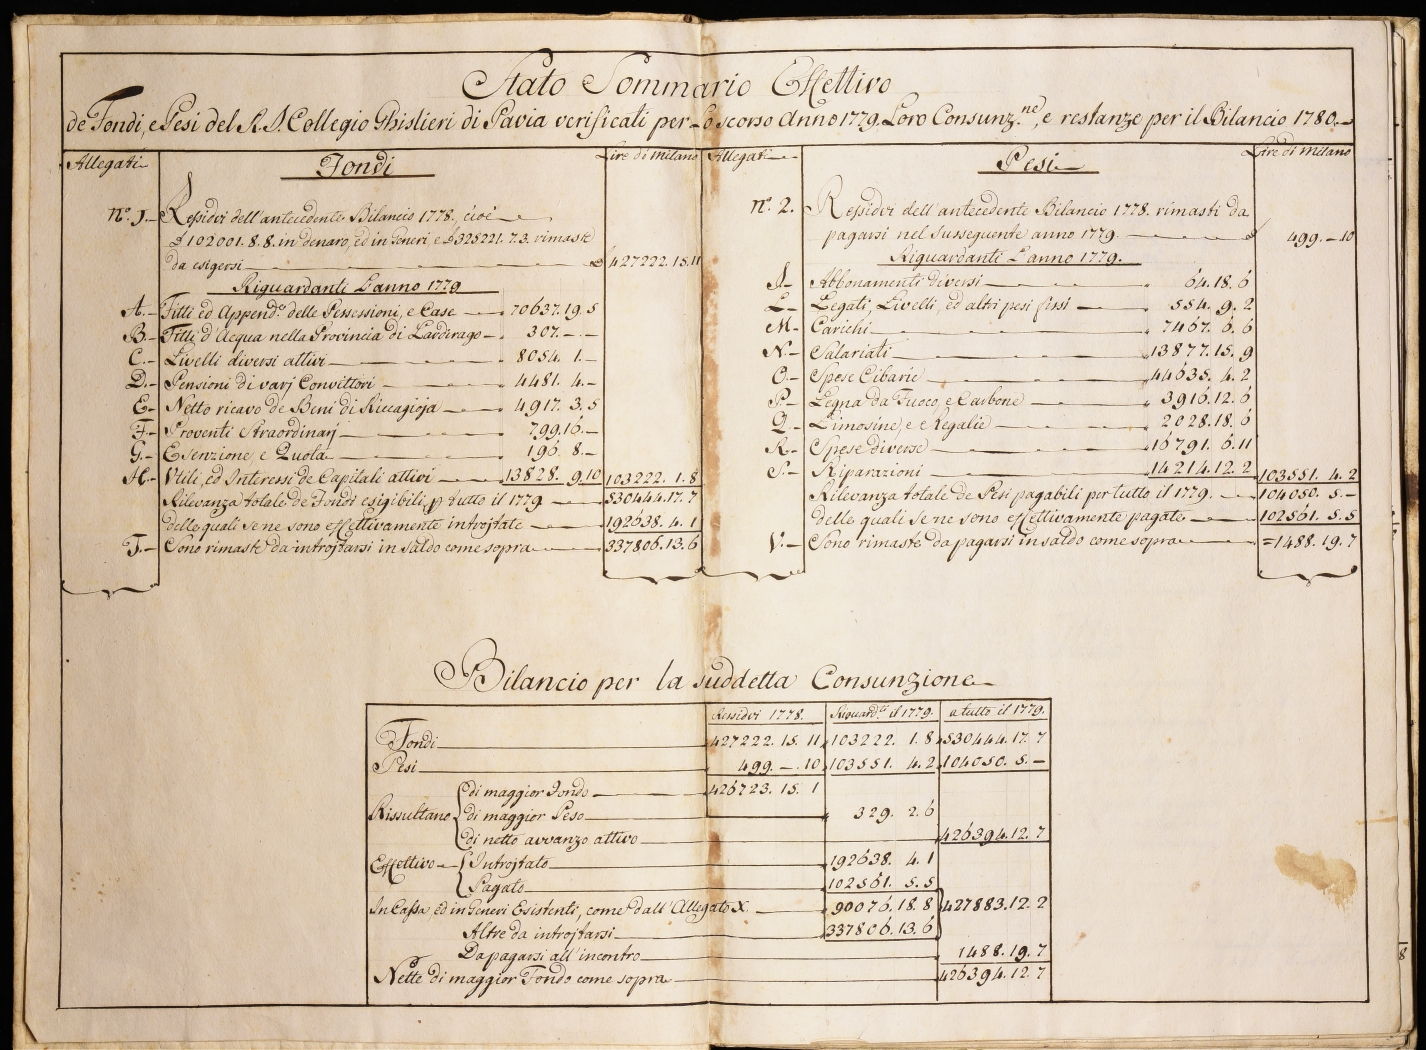 Stato Sommario Effettivo
de Fondi, e Pesi del R. I. Collegio Ghislieri di Pavia verificati per Lo scorso Anno 1779. Loro Consunz.ne, e restanze per il Bilancio 1780.
Allegati Fondi Lire di Milano
n.º 1. Ressidvi dell'antecedente Bilancio 1778. cioè
£ 102001. 8. 8. in denaro, ed in Generi, e £ 325221. 7. 3. rimaste
da esigersi 427222. 15. 11
Riguardanti L'anno 1779
A. Fitti ed Append.e delle Possessioni, e Case 70637. 19. 5
B. Fitti d'Acqua nella Provincia di Lardirago 307. - . -
C. Livelli diversi attivi 8054. 1. -
D. Pensioni di varj Convittori 4481. 4. -
E. Netto ricavo de Beni di Riccagioja 4917. 3. 5
F. Proventi Straordinarj 799. 16. -
G. Esenzione, e Quola 196. 8. -
H. Vtili, ed Interessi de Capitali attivi 13828. 9. 10 103222. 1. 8
Rilevanza totale de Fondi esigibili, p tutto il 1779 530444. 17. 7
delle quali se ne sono effettivamente introjtate 192638. 4. 1
T. Sono rimaste da introjtarsi in saldo come sopra 337806. 13. 6
Allegati Pesi Lire di Milano
n.º 2. Ressidvi dell'antecedente Bilancio 1778. rimasti da
pagarsi nel susseguente anno 1779. 499. - 10
Riguardanti L'anno 1779.
I. Abbonamenti diversi 64. 18. 6
L. Legati, Livelli, ed altri pesi fissi 554. 9. 2
M. Carichi 7467. 6. 6
N. Salariati 13877. 15. 9
O. Spese Cibarie 44635. 4. 2
P. Legna da Fuoco, e Carbone 3916. 12. 6
Q. Limosine, e Regalie 2028. 18. 6
R. Spese diverse 16791. 6. 11
S. Riparazioni 14214. 12. 2 103551. 4. 2
Rilevanza totale de Pesi pagabili per tutto il 1779. 104050. 5. -
delle quali se ne sono effettivamente pagate 102561. 5. 5
V. Sono rimaste da pagarsi in saldo come sopra =1488. 19. 7
Bilancio per la suddetta Consunzione
Ressidvi 1778. Riguard.ti il 1779. a tutto il 1779.
Fondi 427222. 15. 11 103222. 1. 8 530444. 17. 7
Pesi 499. - . 10 103551. 4. 2 104050. 5. -
di maggior Fondo 426723. 15. 1
Rissultano di maggior Peso 329. 2. 6
di netto avvanzo attivo 426394. 12. 7
Effettivo Introjtato 192638. 4. 1
Pagato 102561. 5. 5
In Cassa, ed in Generi Esistenti, come dall'Allegato X. 90076. 18. 8 427883. 12. 2
Altre da introjtarsi 337806. 13. 6
Da pagarsi all'incontro 1488. 19. 7
Nette di maggior Fondo come sopra 426394. 12. 7
8